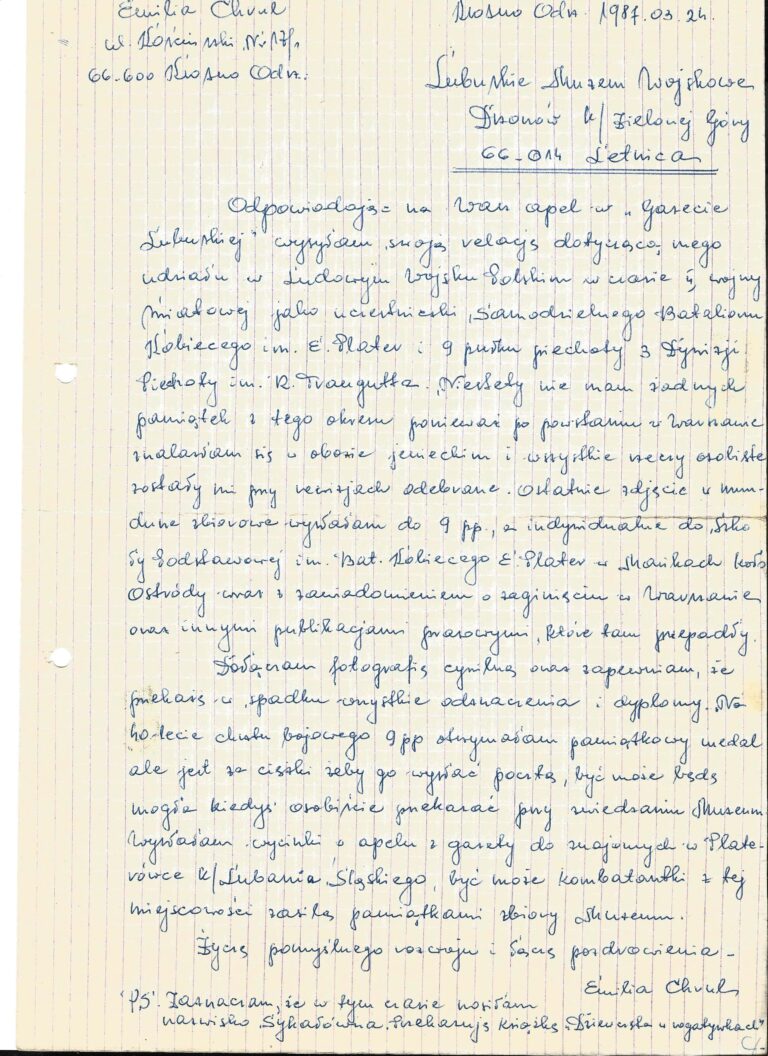 Emilia Chruk
Krosno Odrz. 1987.03.24.
ul. Kościuszki Nr 17/1
66-600 Krosno Odrz.
Lubuskie Muzeum Wojskowe
Drzonów k/Zielonej Góry
66-014 Letnica
Odpowiadając na Wasz apel w „Gazecie
Lubuskiej” wysyłam swoją relację dotyczącą mego
udziału w Ludowym Wojsku Polskim w czasie II wojny
światowej jako uczestniczki Samodzielnego Batalionu
Kobiecego im. E. Plater i 9 pułku piechoty 3 Dywizji
Piechoty im. R. Traugutta. Niestety nie mam żadnych
pamiątek z tego okresu ponieważ po powstaniu w Warszawie
znalazłam się w obozie jenieckim i wszystkie rzeczy osobiste
zostały mi przy rewizjach odebrane. Ostatnie zdjęcie w mun-
durze zbiorowe wysłałam do 9 pp., a indywidualne do Szko
ły Podstawowej im. Bat. Kobiecego E. Plater w Mańkach koło
Ostródy wraz z zawiadomieniem o zaginięciu w Warszawie
oraz innymi publikacjami prasowymi, które tam przepadły.
Dołączam fotografię cywilną oraz zapewniam, że
przekażę w spadku wszystkie odznaczenia i dyplomy. Na
40-lecie chrztu bojowego 9 pp otrzymałam pamiątkowy medal
ale jest za ciężki żeby go wysłać pocztą, być może będę
mogła kiedyś osobiście przekazać przy zwiedzaniu Muzeum
Wysłałam wycinki o apelu z gazety do znajomych w Plate-
rówce k/Lubania Śląskiego, być może kombatantki z tej
miejscowości zasilą pamiątkami zbiory Muzeum.
Życzę pomyślnego rozwoju i łączę pozdrowienia -
Emilia Chruk
PS. Zaznaczam, że w tym czasie nosiłam
nazwisko Sykałówna. Przekazuję książkę „Dziewczęta w rogatywkach”